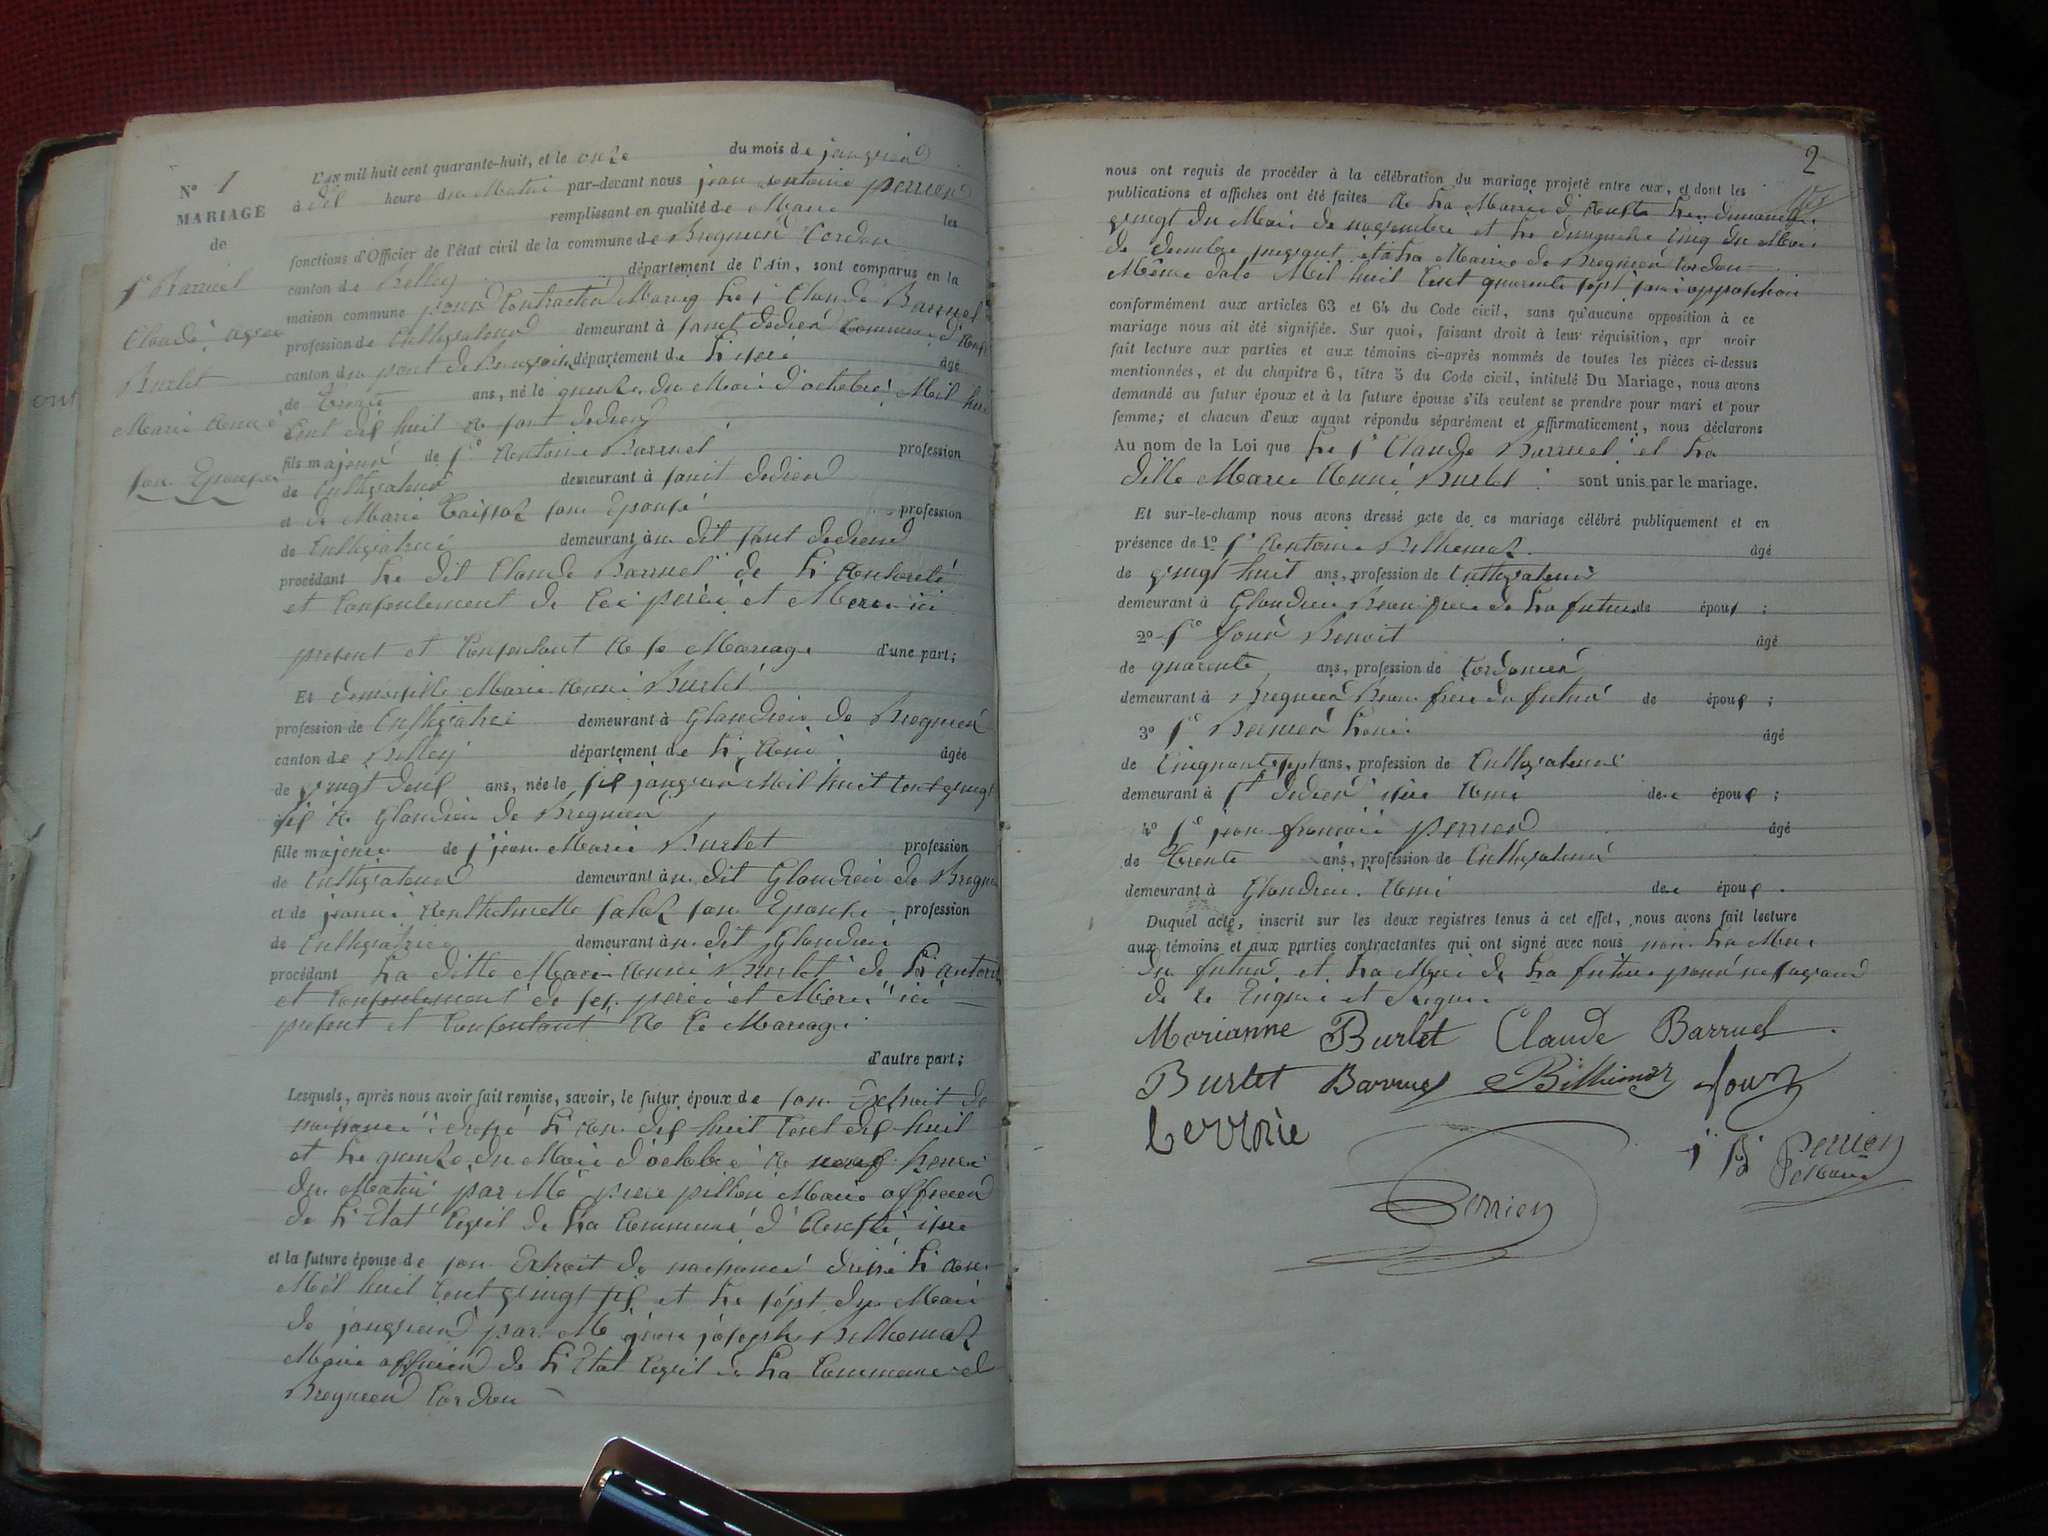 N° 1
MARIAGE
de
Sr Barruel
Claude avec
Burlet
Marie Anne
son Epouse
L'an mil huit cent quarante-huit, et le onze du mois de janvier
à dix heure du Matin par-devant nous jean antoine perrier
remplissant en qualité de Maire les
fonctions d'Officier de l'état civil de la commune de Bregnier Cordon
canton de Belley département de l'Ain, sont comparus en la
maison commune pour Contracter Mariag Le sr Claude Barruel
profession de Cultivateur demeurant à saint dedier Commune d'Aoste
canton du pont de Beauvoisin département de L'isere âgé
de Trente ans, né le quinze du Moi d'octobre Mil huit
Cent dix huit a saint dedier
fils majeur de sr Antoine Barruel profession
de Cultivateur demeurant à saint dedier
et de Marie son Epouse profession
de Cultivatrice demeurant à u dit saint dedier
procédant Le dit Claude Barruel de L'autorité
et Consentement de Ces père et Mere ici
present et Consentant a se Mariage d'une part;
Et demoiselle Marie Anne Burlet
profession de Cultivatrice demeurant à Glandieu de Bregnier
canton de Belley département de L'Ain âgée
de vingt deux ans, née le six janvier Mil huit Cent vingt
six a Glandieu de Bregnier
fille majeure de sr jean Marie Burlet profession
de Cultivateur demeurant à u dit Glandieu de Bregnier
et de jeanne son Epouse profession
de Cultivatrice demeurant à u dit Glandieu
procédant La ditte Marie Anne Burlet de L'autorité
et Consentement de ses père et Mère ici
present et Consentant a Ce Mariage
d'autre part;
Lesquels, après nous avoir fait remise, savoir, le futur époux de son Extrait de
naissance dressé L'an dix huit Cent dix huit
et Le quinze du Moi d'octobre a neuf heures
du Matin par Me piere Maire officier
de L'Etat Civil de La Commune d'Aoste isere
et la future épouse de son Extrait de naissance dressé L'an
Mil huit Cent vingt six et Le sept du Moi
de janvier par Me jean joseph Billiemaz
Maire officier de L'Etat Civil de La Commune de
Bregnier Cordon
2
nous ont requis de procéder à la célébration du mariage projeté entre eux, et dont les
publications et affiches ont été faites de La Mairie d'Aoste Les dimanche
vingt du Moi de novembre et Le dimanche Cinq du Moi
de decembre et a La Mairie de Bregnier Cordon
Même date Mil huit Cent quarante sept sans opposition
conformément aux articles 63 et 64 du Code civil, sans qu'aucune opposition à ce
mariage nous ait été signifiée. Sur quoi, faisant droit à leur réquisition, apr avoir
fait lecture aux parties et aux témoins ci-après nommés de toutes les pièces ci-dessus
mentionnées, et du chapitre 6, titre 5 du Code civil, intitulé Du Mariage, nous avons
demandé au futur époux et à la future épouse s'ils veulent se prendre pour mari et pour
femme; et chacun d'eux ayant répondu séparément et affirmativement, nous déclarons
Au nom de la Loi que Le sr Claude Barruel et La
ditte Marie Anne Burlet sont unis par le mariage.
Et sur-le-champ nous avons dressé acte de ce mariage célébré publiquement et en
présence de 1° sr Antoine Billiemaz âgé
de vingt huit ans, profession de Cultivateur
demeurant à Glandieu Beau frere de La future de épous ;
2° sr Benoit âgé
de quarente ans, profession de Cordonier
demeurant à Bregnier Beau frere du futur de épous ;
3° sr Louis âgé
de Cinquante sept ans, profession de Cultivateur
demeurant à st dedier isère Ami de s épous ;
4° sr jean françois perrier âgé
de Trente ans, profession de Cultivateur
demeurant à Glandieu. Ami de s épous .
Duquel acte, inscrit sur les deux registres tenus à cet effet, nous avons fait lecture
aux témoins et aux parties contractantes qui ont signé avec nous non La Mere
du futur et La Mere de La future pour ne savoir
de Ce Enquis et Requis
Marianne Burlet Claude Barruel
Burlet Barruel Billiemaz
Perrier
Perrier